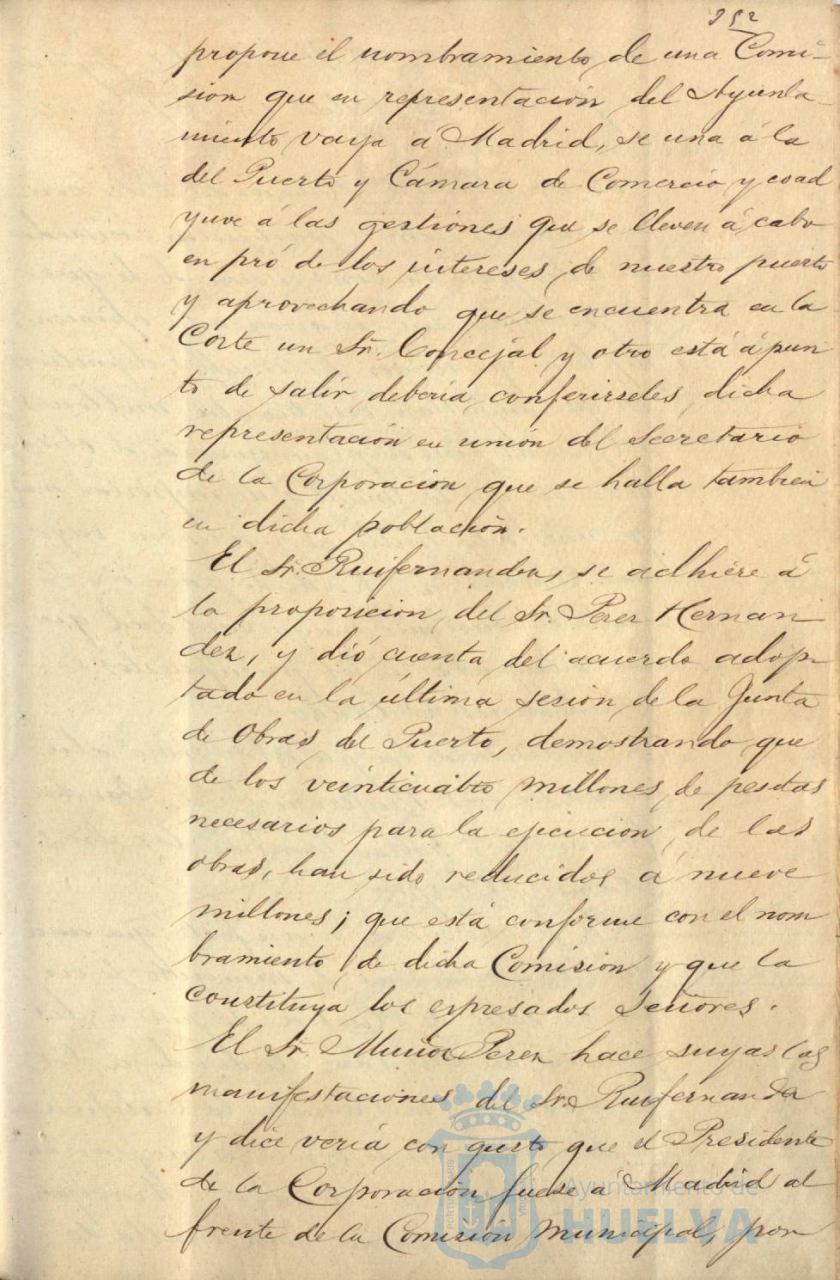 952
propone el nombramiento de una Comi-
sion que en representación del Ayunta-
miento vaya á Madrid, se una á la
del Puerto y Cámara de Comercio y coad
yuve á las gestiones que se lleven á cabo
en pró de los intereses de nuestro puerto
y aprovechando que se encuentra en la
Corte un Sr. Concejal y otro está á pun
to de salir deberia conferirseles dicha
representación en unión del Secretario
de la Corporacion que se halla tambien
en dicha población.
El Sr. Ruifernandez, se adhiere á
la proposicion del Sr. Perez Hernan
dez, y dió cuenta del acuerdo adop-
tado en la última sesión de la Junta
de Obras del Puerto, demostrando que
de los veinticuatro millones de pesetas
necesarios para la ejecucion de las
obras, han sido reducidos á nueve
millones; que está conforme con el nom
bramiento de dicha Comision y que la
constituya los espresados Señores.
El Sr. Muñoz Perez hace suyas las
manifestaciones del Sr. Ruifernandez
y dice veria con gusto que el Presidente
de la Corporación fuese á Madrid al
frente de la Comisión Municipal, por
Ayuntamiento de
HUELVA